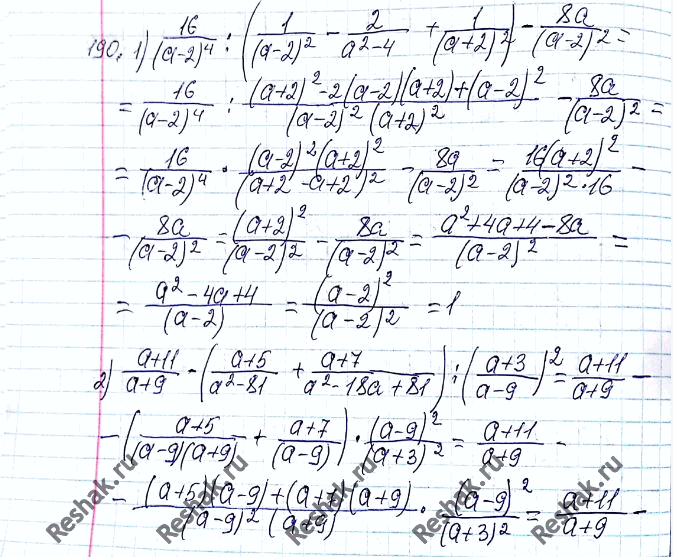 190. 1) 16/(a-2)^4 : (1/(a-2)^2 - 2/(a^2-4) + 1/(a+2)^2) - 8a/(a-2)^2 =
= 16/(a-2)^4 : ((a+2)^2-2(a-2)(a+2)+(a-2)^2)/((a-2)^2(a+2)^2) - 8a/(a-2)^2 =
= 16/(a-2)^4 · ((a-2)^2(a+2)^2)/(a+2-a+2)^2 - 8a/(a-2)^2 = 16(a+2)^2/((a-2)^2·16) -
- 8a/(a-2)^2 = (a+2)^2/(a-2)^2 - 8a/(a-2)^2 = (a^2+4a+4-8a)/(a-2)^2 =
= (a^2-4a+4)/(a-2) = (a-2)^2/(a-2)^2 = 1
2) (a+11)/(a+9) - ((a+5)/(a^2-81) + (a+7)/(a^2-18a+81)) : ((a+3)/(a-9))^2 = (a+11)/(a+9) -
- ((a+5)/((a-9)(a+9)) + (a+7)/(a-9)) · (a-9)^2/(a+3)^2 = (a+11)/(a+9) -
- ((a+5)(a-9)+(a+7)(a+9))/((a-9)^2(a+9)) · (a-9)^2/(a+3)^2 = (a+11)/(a+9) -
Reshak.ru
Reshak.ru
Reshak.ru
Reshak.ru